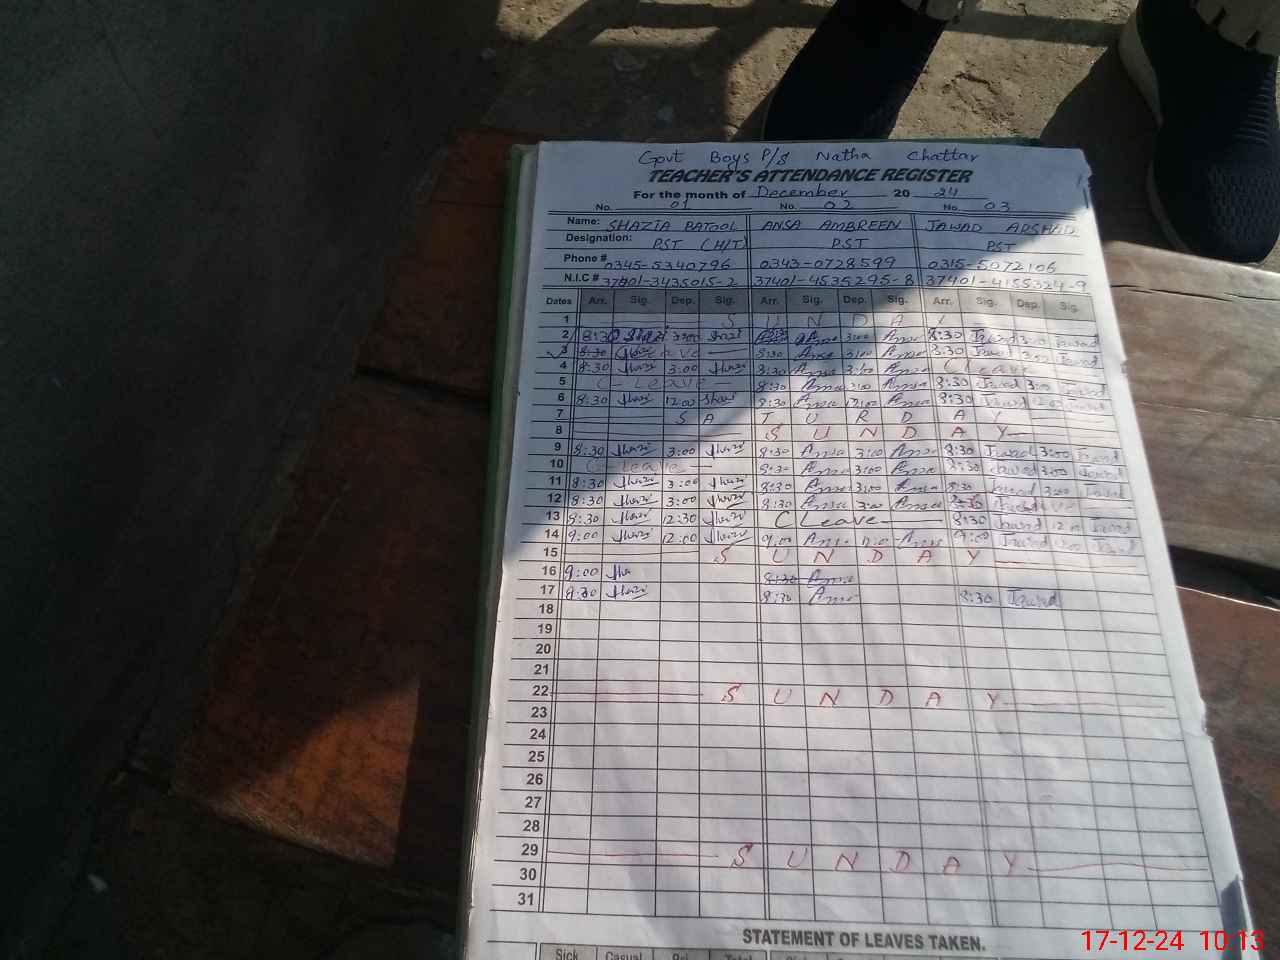 Govt Boys P/S Natha Chattar
TEACHER'S ATTENDANCE REGISTER
For the month of December 20 24
No. 01 No. 02 No. 03
Name: SHAZIA BATOOL ANSA AMBREEN JAWAD ARSHAD
Designation: PST (H/T) PST PST
Phone # 0345-5340796 0343-0728599 0315-5072106
N.I.C # 37401-3435015-2 37401-4535295-8 37401-4155324-9
Dates Arr. Sig. Dep. Sig. Arr. Sig. Dep. Sig. Arr. Sig. Dep. Sig.
1 S U N D A Y
2 8:30 3:00 Ansa 3:00 Ansa 8:30 Jawad 3:00 Jawad
3 8:30 Leave 8:30 Ansa 3:00 Ansa 8:30 Jawad 3:00 Jawad
4 8:30 Shazi 3:00 Shazi 8:30 Ansa 3:00 Ansa C Leave
5 C-Leave 8:30 Ansa 3:00 Ansa 8:30 Jawad 3:00 Jawad
6 8:30 Shazi 12:00 Shazi 8:30 Ansa 12:00 Ansa 8:30 Jawad 12:00 Jawad
7 S A T U R D A Y
8 S U N D A Y
9 8:30 Shazi 3:00 Shazi 8:30 Ansa 3:00 Ansa 8:30 Jawad 3:00 Jawad
10 C-Leave 8:30 Ansa 3:00 Ansa 8:30 Jawad 3:00 Jawad
11 8:30 Shazi 3:00 Shazi 8:30 Ansa 3:00 Ansa 8:30 Jawad 3:00 Jawad
12 8:30 Shazi 3:00 Shazi 8:30 Ansa 3:00 Ansa
13 8:30 Shazi 12:30 Shazi C Leave 8:30 Jawad Jawad
14 9:00 Shazi 12:00 Shazi 9:00 Ansa Ansa 9:00 Jawad Jawad
15 S U N D A Y
16 9:00 Sha 8:30 Ansa
17 8:30 Shazi 8:30 Ansa 8:30 Jawad
18
19
20
21
22 S U N D A Y
23
24
25
26
27
28
29 S U N D A Y
30
31
STATEMENT OF LEAVES TAKEN.
Sick Casual
17-12-24 10:13